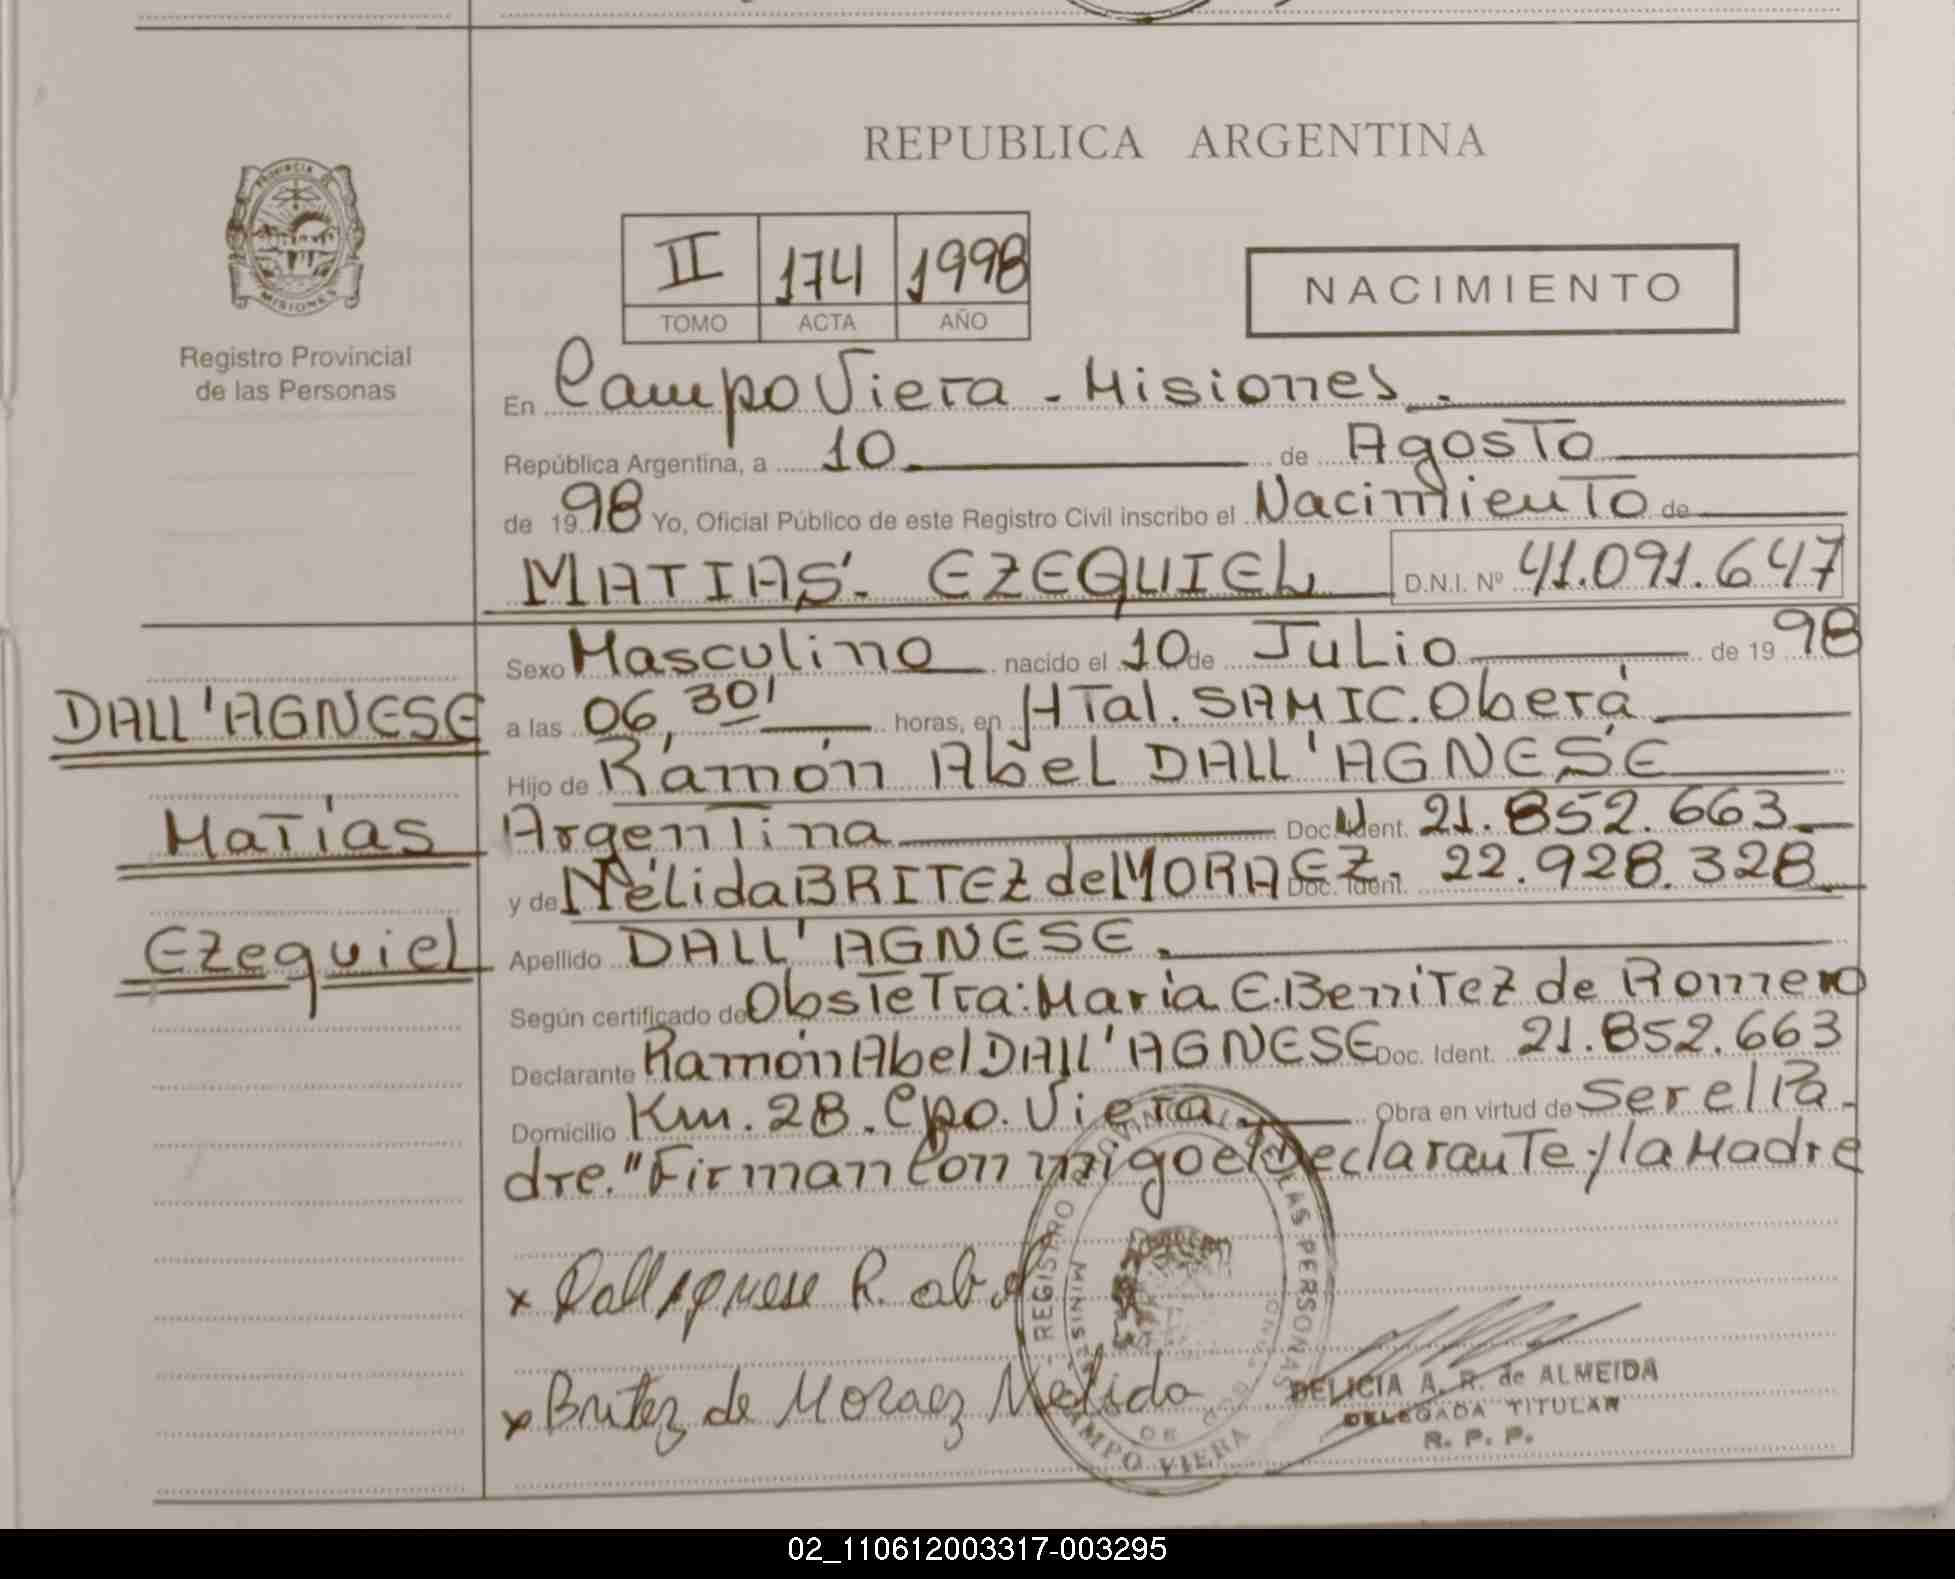 REPUBLICA ARGENTINA
PROVINCIA DE
MISIONES
Registro Provincial
de las Personas
II 174 1998
TOMO ACTA AÑO
NACIMIENTO
En Campo Viera - Misiones.
República Argentina, a 10 de Agosto
de 1998 Yo, Oficial Público de este Registro Civil inscribo el Nacimiento de
MATIAS - EZEQUIEL D.N.I. Nº 41.091.647
Sexo Masculino nacido el 10 de Julio de 1998
a las 06,30' horas, en HTal. SAMIC. Oberá
Hijo de Ramón Abel DALL'AGNESE
Argentina Doc. Ident. N 21.852.663
y de Nélida BRITEZ de MORAEZ. Doc. Ident. 22.928.328
Apellido DALL'AGNESE.
Según certificado de Obstetra: Maria E. Benitez de Romero
Declarante Ramón Abel DALL'AGNESE Doc. Ident. 21.852.663
Domicilio Km. 28. Cpo. Viera. Obra en virtud de ser el Pa-
dre." Firman Conmigo el Declarante y la Madre
DALL'AGNESE
Matías
Ezequiel
x Dallagnese R. abel
x Britez de Moraez Nelida
REGISTRO PROVINCIAL DE LAS PERSONAS
CAMPO VIERA
DELICIA A. R. de ALMEIDA
DELEGADA TITULAR
R. P. P.
02_110612003317-003295